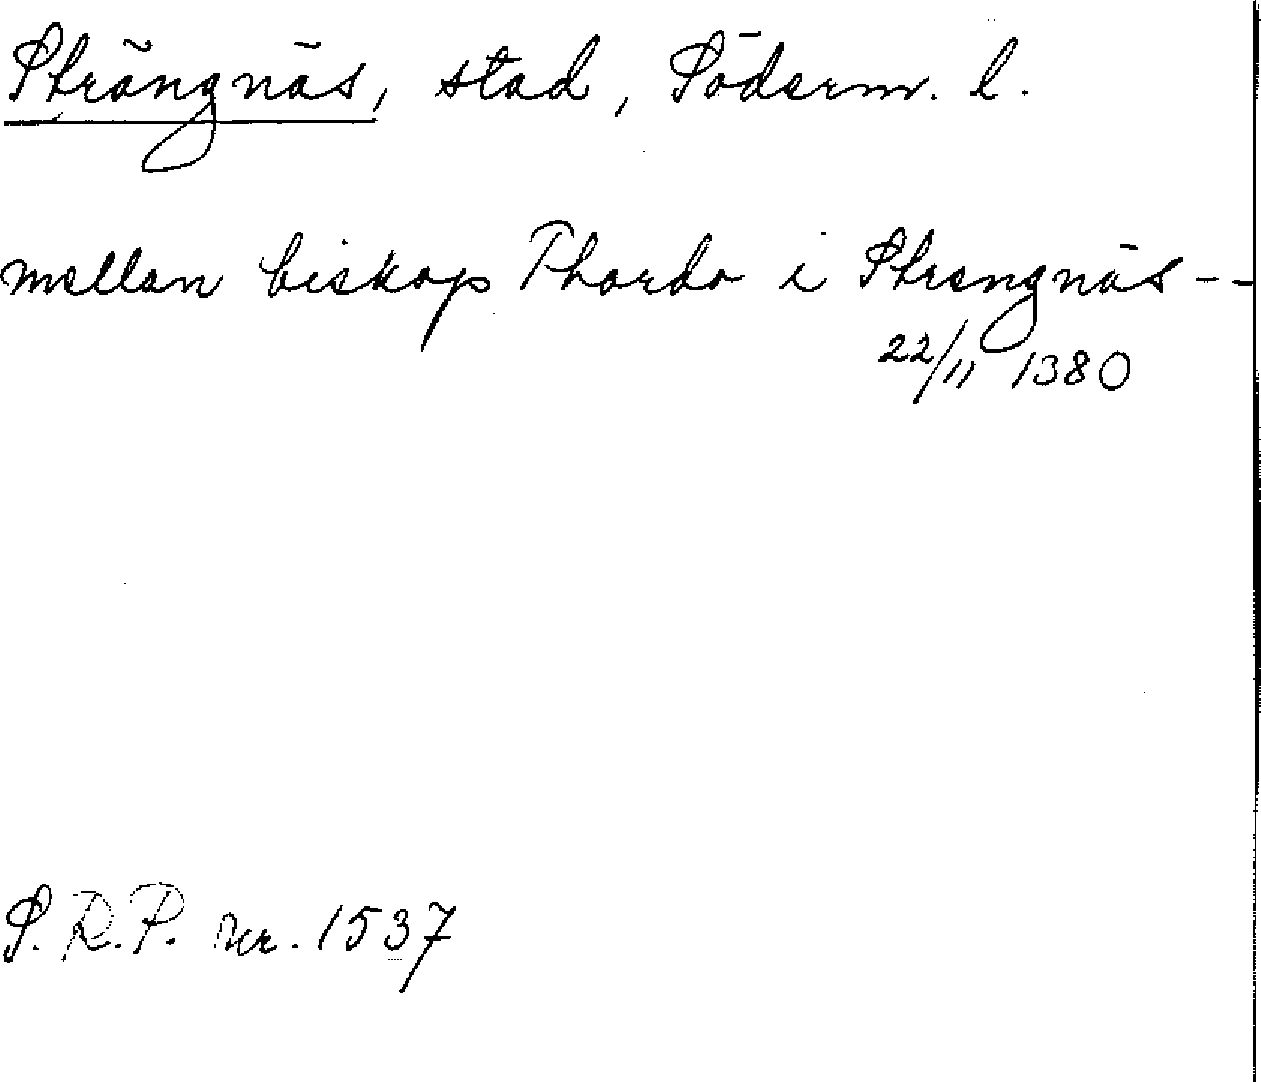 Strängnäs, stad, Söderm. l.
mellan biskop Thordo i Strengnäs - -
22/11 1380
S. R. P. nr. 1537